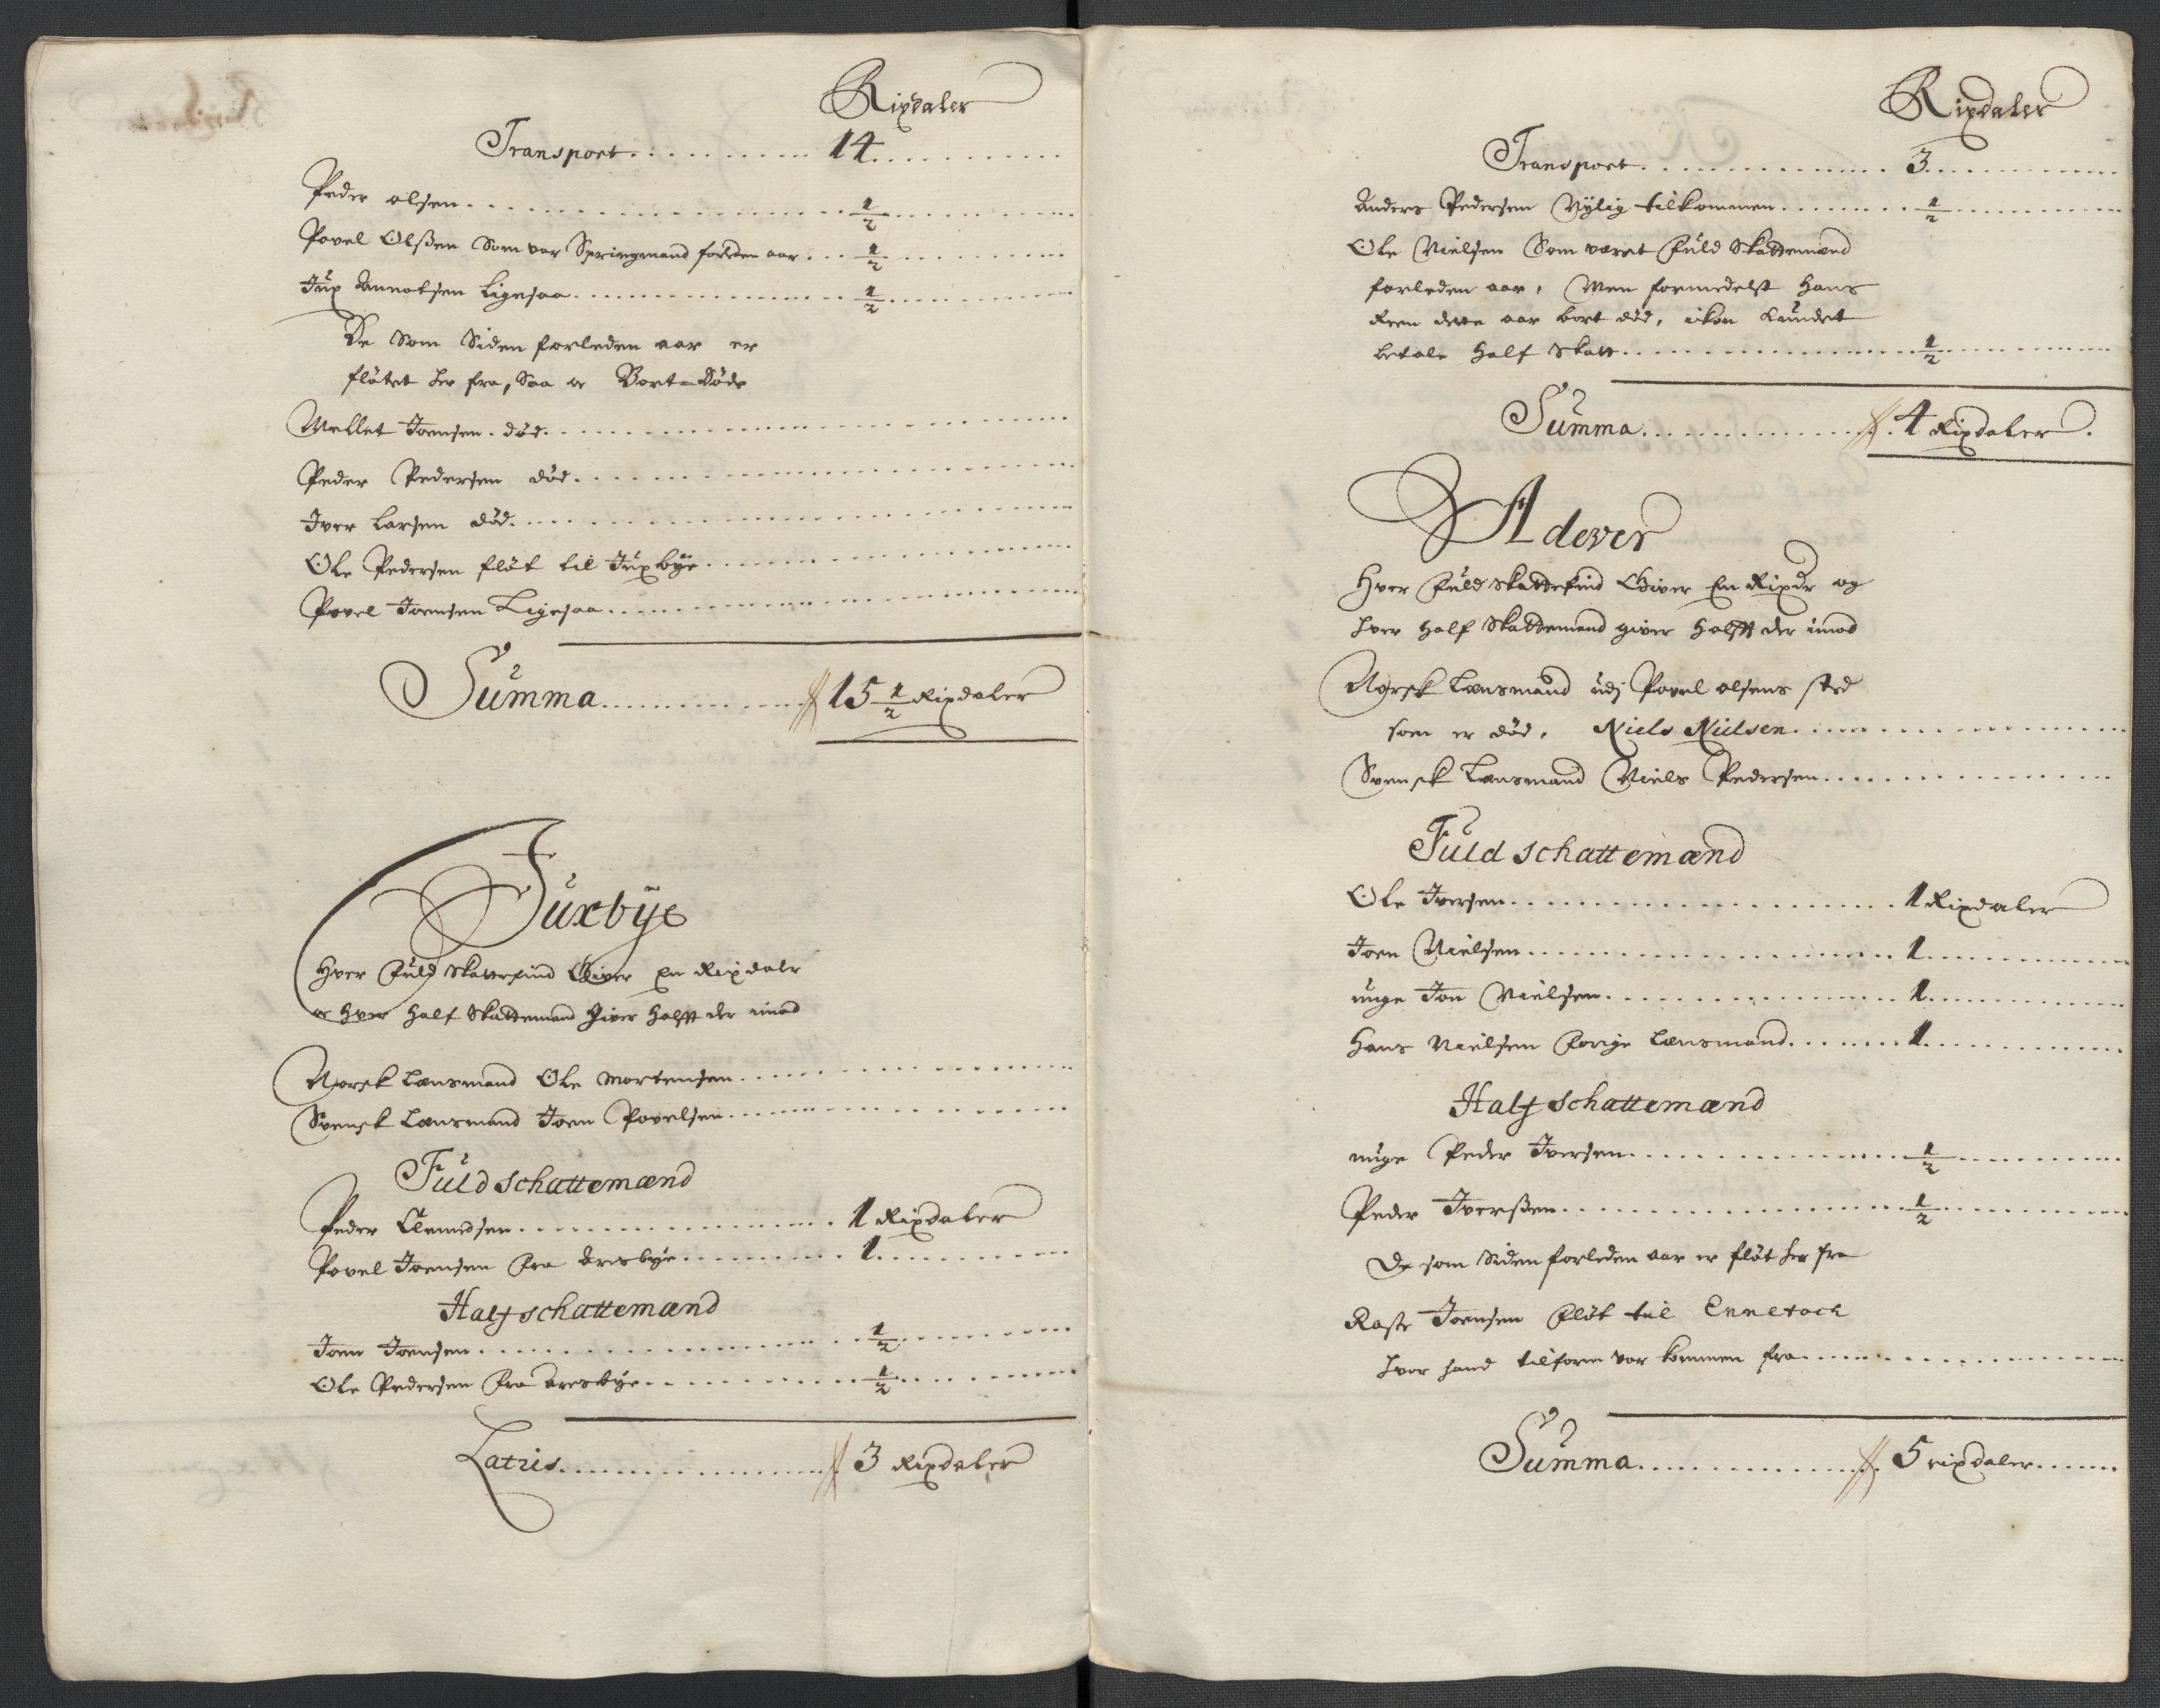 Rixdaler
Transport 14
Peder olsen 1/2
Povel Olßen Som var Springmand forleden aar 1/2
Jux Amnotsen Ligesaa 1/2
De Som Siden forleden aar er
fløtet her fra, Saa oc Bort-Døde
Mellet Joensen. død.
Peder Pedersen død.
Iver Larsen død.
Ole Pedersen fløt til Juxbÿe
Povel Joensen Ligesaa
Summa 15 1/2 Rixdaler
Juxbÿe
Hver Fuld Skattefind Giver En Rixdalr
oc hver half Skattemand Giver halfft der imod
Norsk Lænsmand Ole Mortensen
Svensk Lænsmand Joen Povelsen
Fuld schattemænd
Peder Clemedsen 1 Rixdaler
Povel Joensen Fra Aresbÿe 1
Half schattemænd
Joen Joensen 1/2
Ole Pedersen Fra Aresbÿe 1/2
Latris 3 Rixdaler
Rixdaler
Transport 3
Anders Pedersen Nylig tilkommen 1/2
Ole Nielsen Som været Fuld Skattemænd
forleden aar, Men formedelst hans
Reen dette aar bort død, icke kundet
betale half Skatt 1/2
Summa 4 Rixdaler.
Adever
Hver Fuld Skattefind Giver En Rixdr og
hver half Skattemand giver halfft der imod
Norsk Lænsmand udj Povel olsens sted
som er død, Niels Nielsen
Svensk Lænsmand Niels Pedersen
Fuld schattemænd
Ole Iversen 1 Rixdaler
Joen Nielsen 1
unge Jon Nielsen 1
Hans Nielsen Forige Lænsmand 1
Half schattemænd
unge Peder Iversen 1/2
Peder Iverßen 1/2
De som Siden forleden aar er fløt her fra
Raste Joensen Fløt til Enneroch
hvor hand tilforn var kommen fra
Summa 5 rixdaler